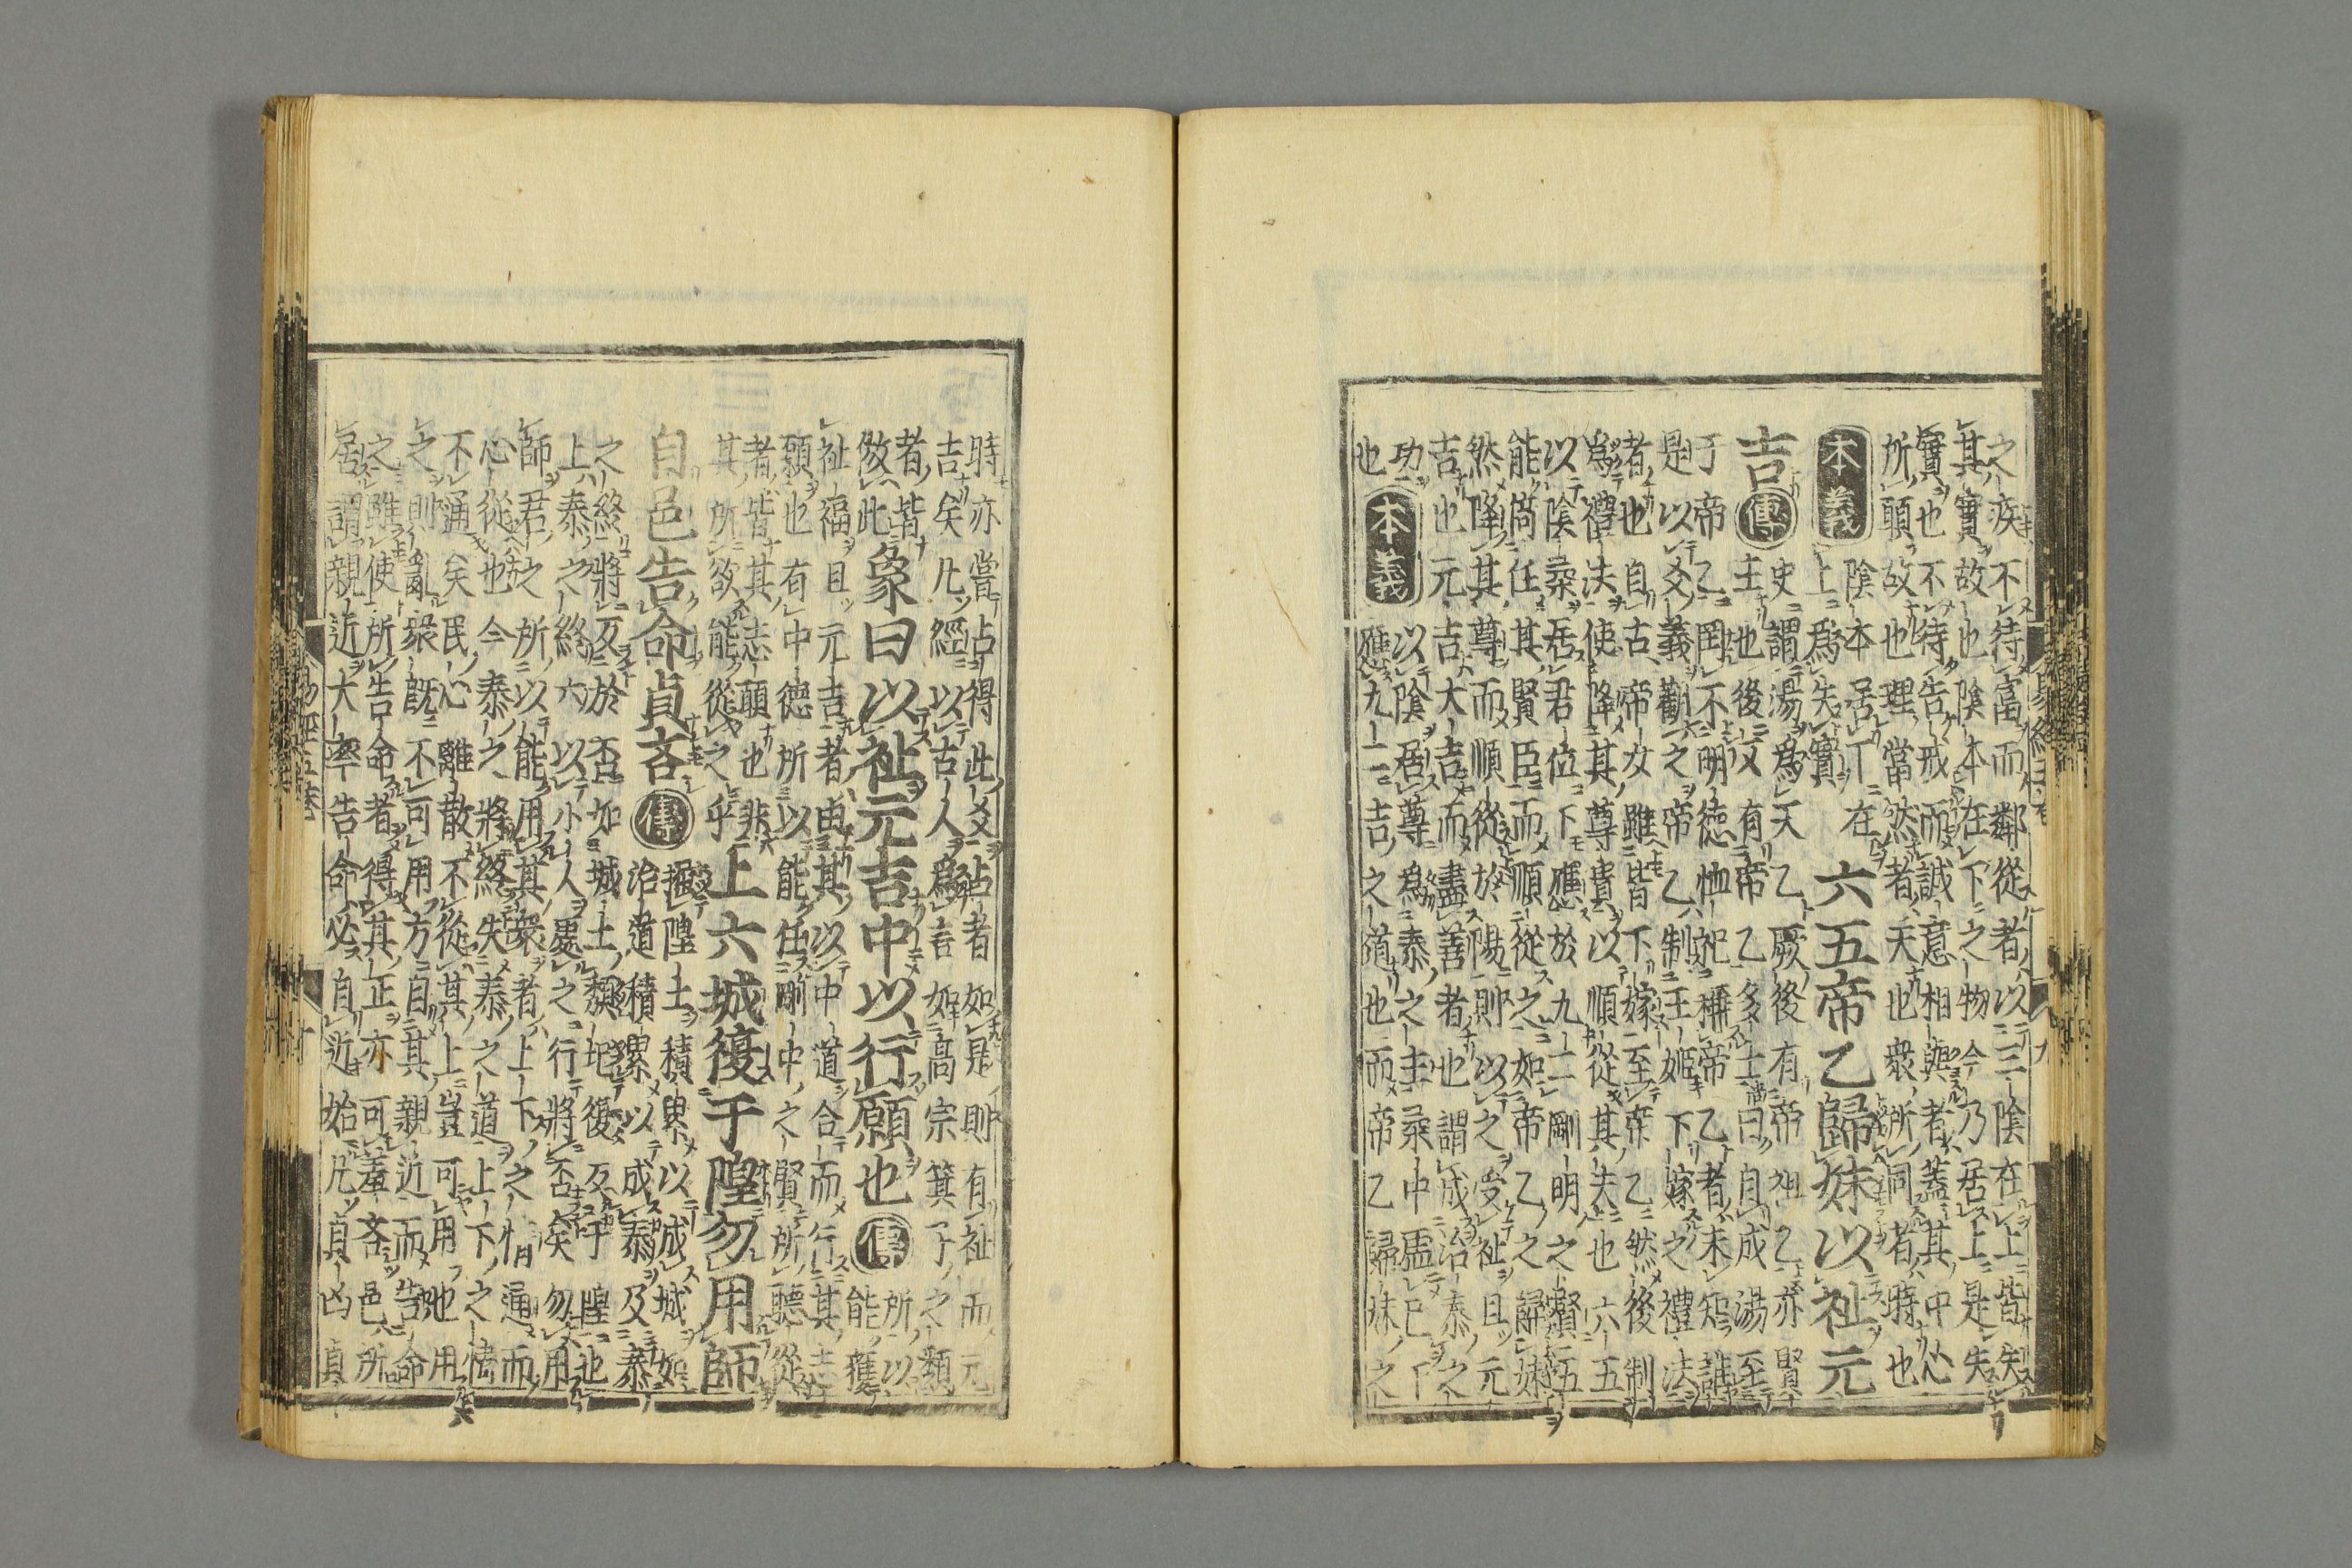 之疾不待富而鄰從者以三陰在上皆失
其實故也陰本在下之物今乃居上是失
實也不待告戒而誠意相與者蓋其中心
所願故也理當然者天也衆所同者時也
本義
陰本居下在
上爲失實
六五帝乙歸妹以祉元
吉傳
史謂湯爲天乙厥後有帝祖乙亦賢
主也後又有帝乙多士曰自成湯至
于帝乙罔不明德恤祀稱帝乙者未知誰
是以爻義觀之帝乙制王姬下嫁之禮法
者也自古帝女雖皆下嫁至帝乙然後制
爲禮法使降其尊貴以順從其夫也六五
以陰柔居君位下應於九二剛明之賢五
能倚任其賢臣而順從之如帝乙之歸妹
然降其尊而順從於陽則以之受祉且元
吉也元吉大吉而盡善者也謂成治泰之
功
也
本義
以陰居尊爲泰之主柔中虛己下
應九二吉之道也而帝乙歸妹之
時亦嘗占得此爻占者如是則有祉而元
吉矣凡經以古人爲言如高宗箕子之類
者皆
放此
象曰以祉元吉中以行願也傳
所以
能獲
祉福且元吉者由其以中道合而行其志
願也有中德所以能任剛中之賢所聽從
者皆其志願也非
其所欲能從之乎
上六城復于隍勿用師
自邑告命貞吝傳
掘隍土積累以成城如
治道積累以成泰及泰
之終將反於否如城土頹圮復反于隍也
上泰之終六以小人處之行將否矣勿用
師君之所以能用其衆者上下之情通而
心從也今泰之將終失泰之道上下之情
不通矣民心離散不從其上豈可用也用
之則亂衆既不可用方自其親近而告命
之雖使所告命者得其正亦可羞吝邑所
居謂親近大率告命必自近始凡貞凶貞